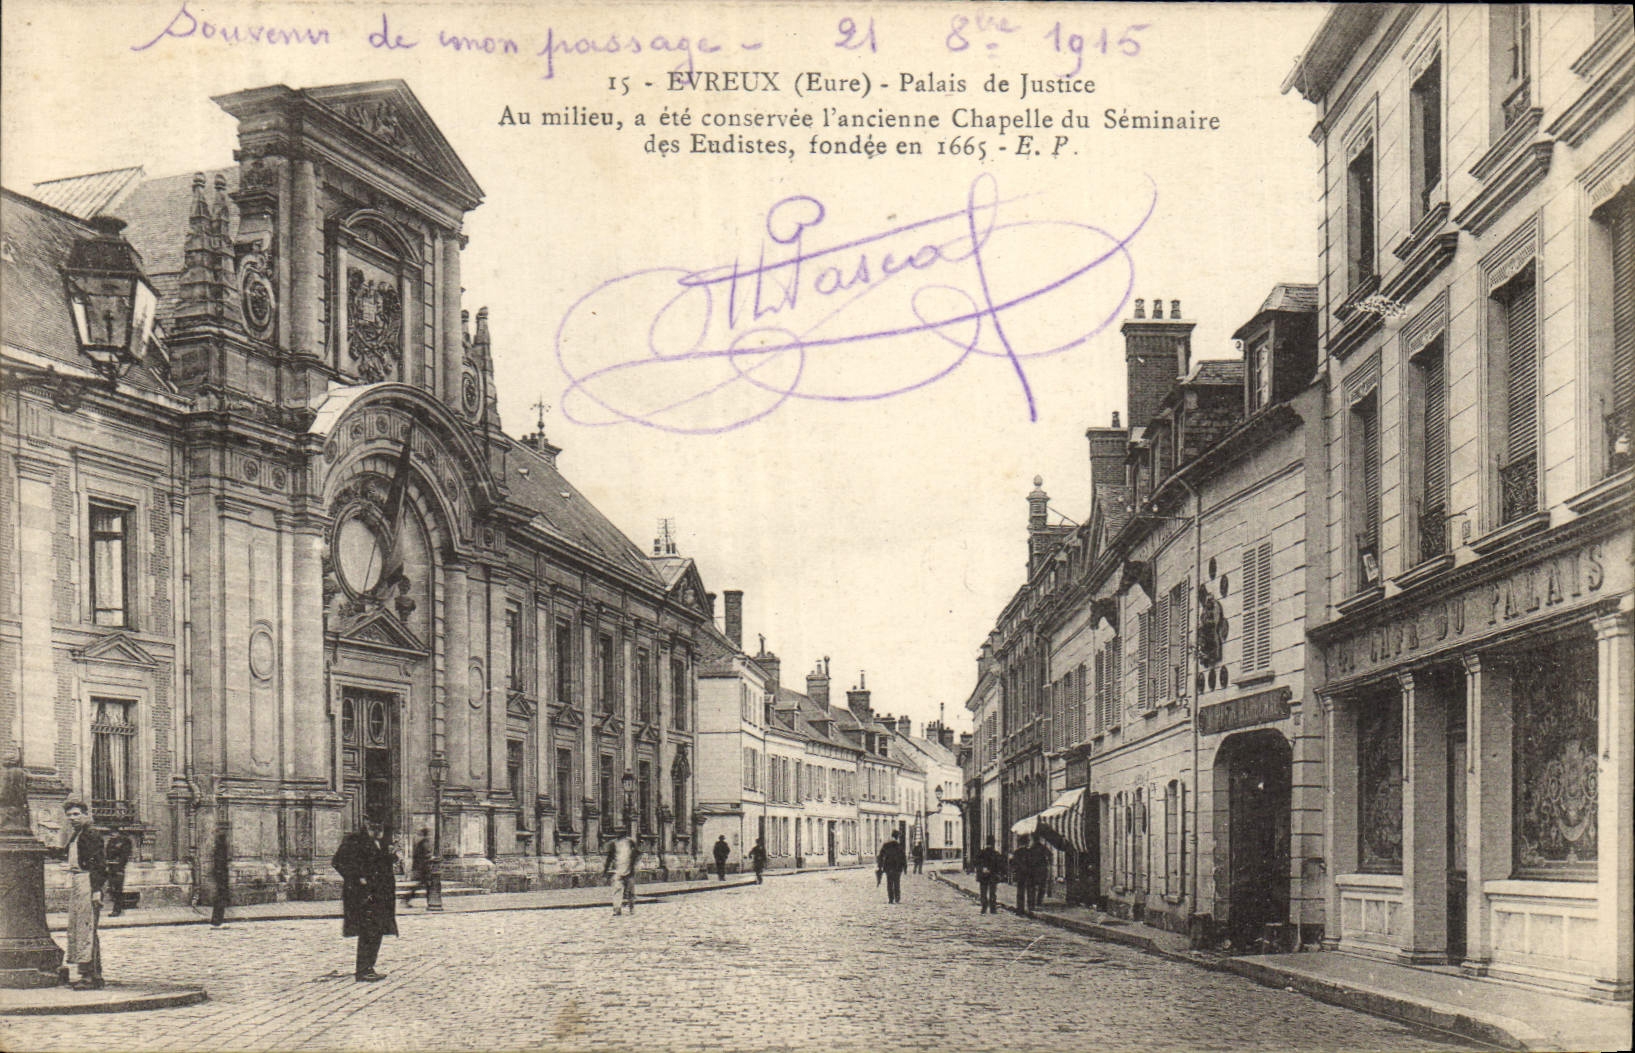 Souvenir de mon passage - 21 8bre 1915
15 - EVREUX (Eure) - Palais de Justice
Au milieu, a été conservée l'ancienne Chapelle du Séminaire
des Eudistes, fondée en 1665 - E. P.
Pascal
CAFÉ DU PALAIS